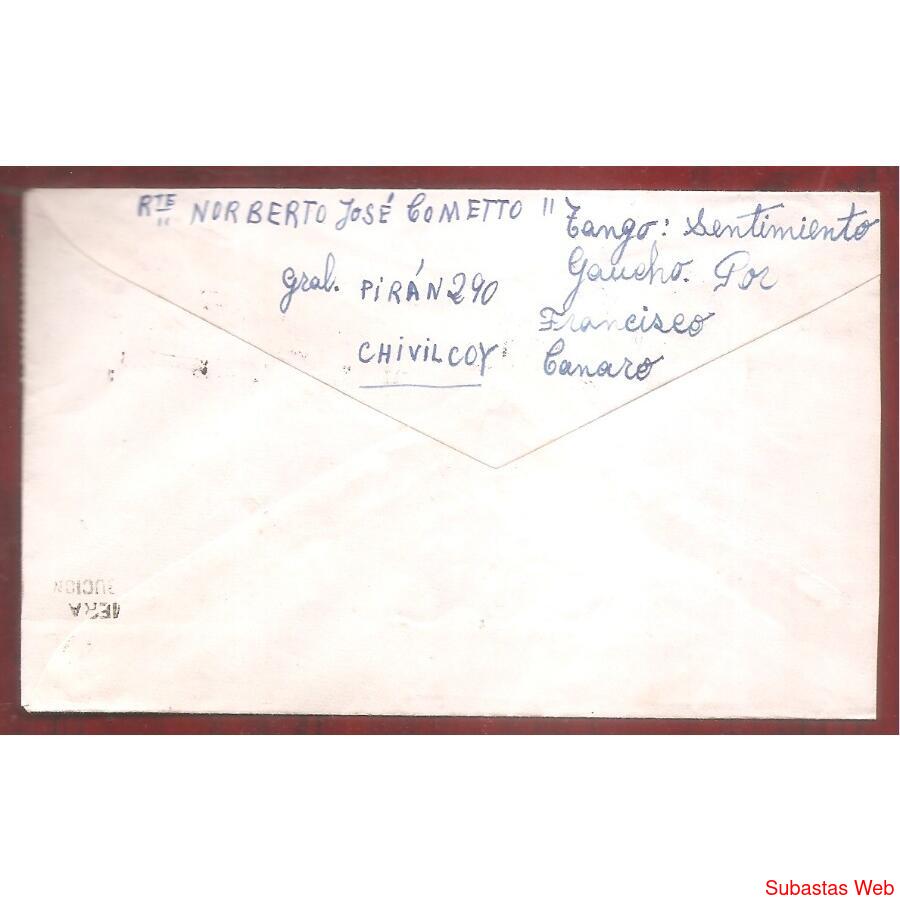 RTE NORBERTO JOSÉ COMETTO "
Gral. PIRÁN 290
CHIVILCOY
Tango: Sentimiento
Gaucho. Por
Francisco
Canaro
Subastas Web